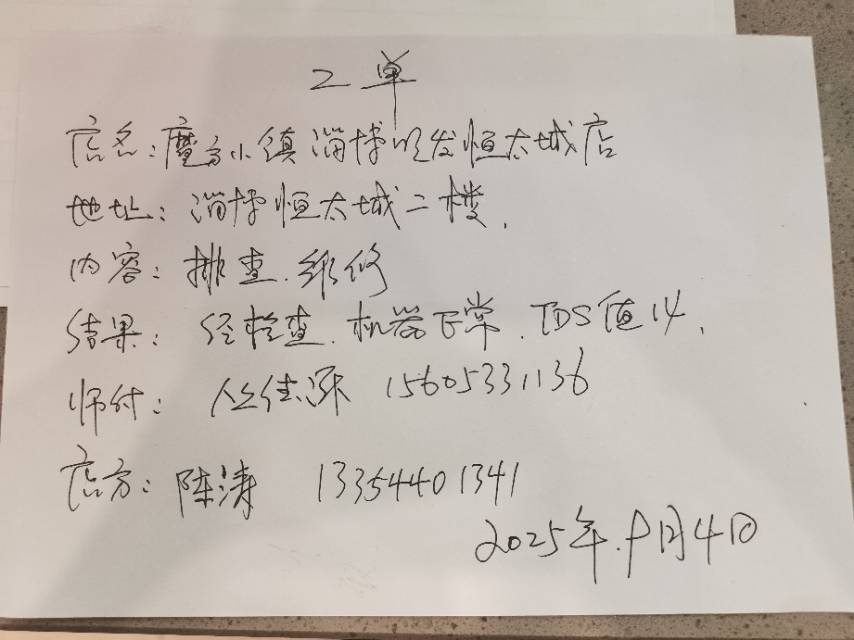 工单
店名：魔方小镇淄博吾悦恒太城店
地址：淄博恒太城二楼，
内容：排查、维修
结果：经检查、机器正常、TDS值14，
师付：丛佳 15605331136
店方：陈涛 13354401341
2025年、9月4日